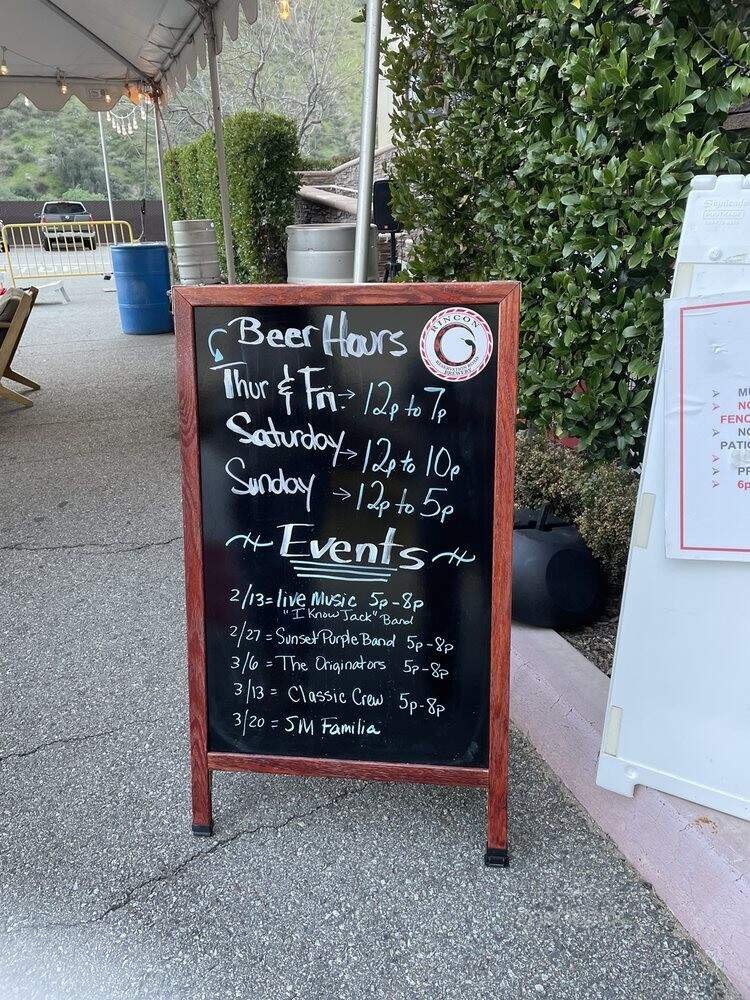 Beer Hours
RINCON
RESERVATION ROAD
BREWERY
Thur & Fri → 12p to 7p
Saturday → 12p to 10p
Sunday → 12p to 5p
Events
2/13 = live Music 5p-8p
"I Know Jack" Band
2/27 = Sunset Purple Band 5p-8p
3/6 = The Originators 5p-8p
3/13 = Classic Crew 5p-8p
3/20 = SM Familia
➤ MU
➤ NO
FENC
➤ NO
PATIO
➤
➤ PR
➤ 6p